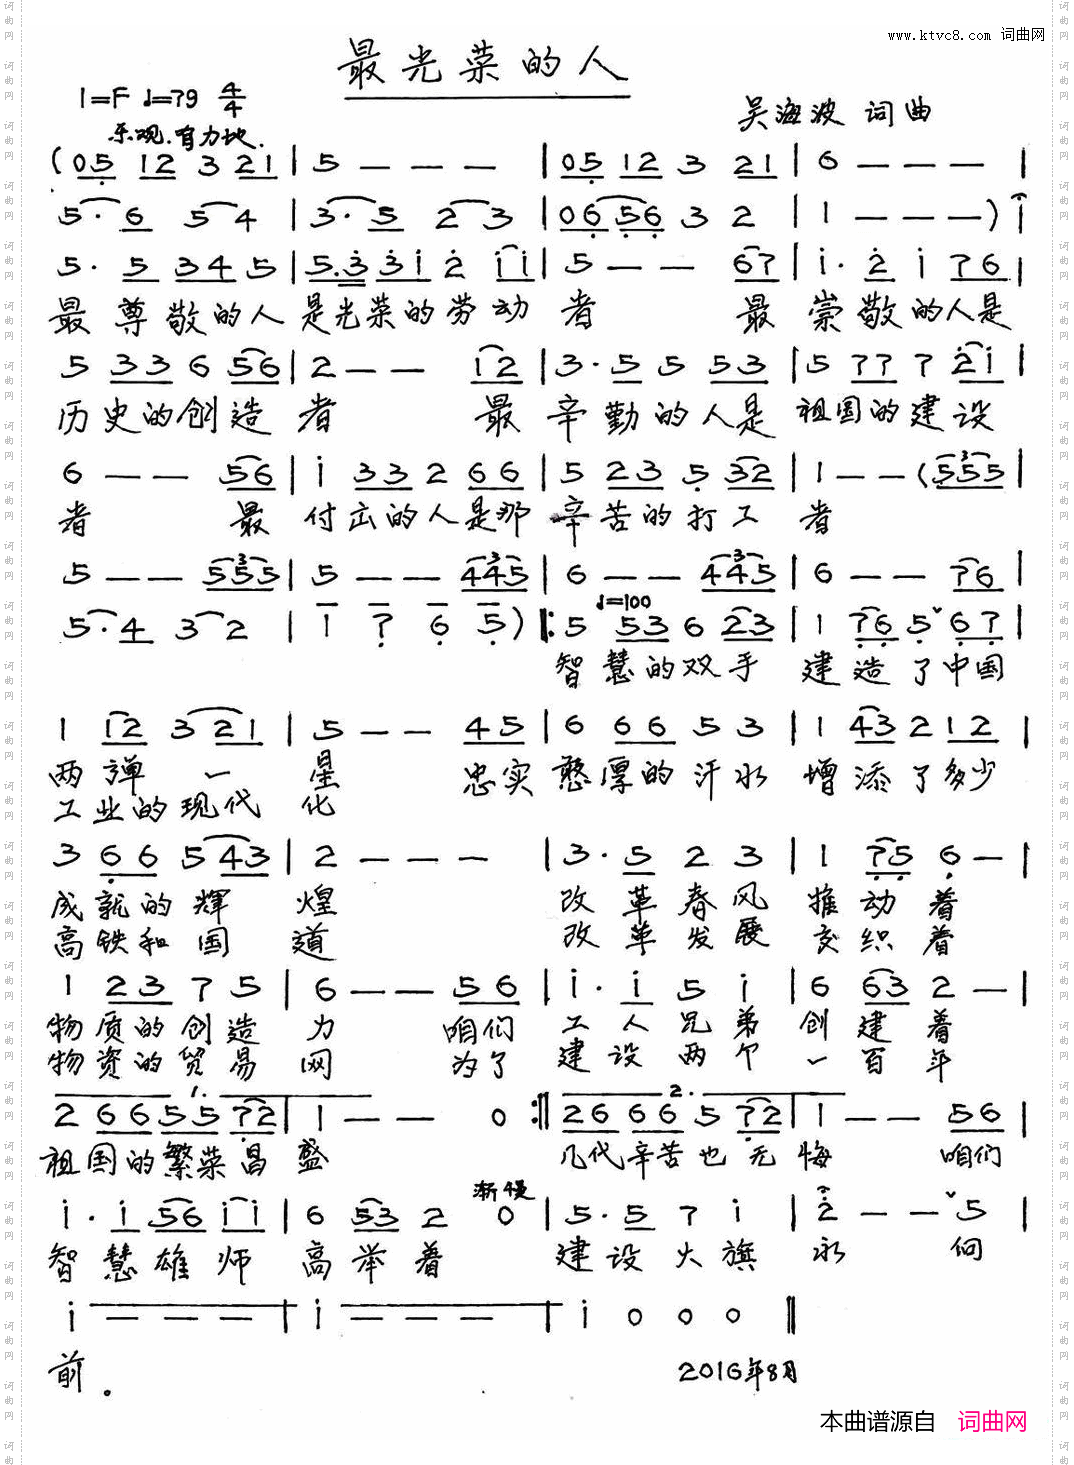 www.ktvc8.com 词曲网
最光荣的人
1=F ♩=79 4/4
吴海波 词曲
乐观.有力地.
(05 12 3 21 | 5 — — — | 05 12 3 21 | 6 — — — |
5· 6 5 4 | 3· 5 2 3 | 0656 3 2 | 1 — — —) |
5· 5 34 5 | 5.3 31 2 11 | 5 — — 67 | 1· 2 1 76 |
最尊敬的人是光荣的劳动者 最崇敬的人是
5 33 6 56 | 2 — — 12 | 3· 5 5 53 | 5 77 7 21 |
历史的创造者 最辛勤的人是祖国的建设
6 — — 56 | 1 33 2 66 | 5 23 5 32 | 1 — — (555 |
者 最付出的人是那辛苦的打工者
5 — — 555 | 5 — — 445 | 6 — — 445 | 6 — — 76 |
♩=100
5· 4 3 2 | 1 7 6 5) ‖: 5 53 6 23 | 1 76 5 ˇ 67 |
智慧的双手 建造了中国
1 12 3 21 | 5 — — 45 | 6 66 5 3 | 1 43 2 12 |
两弹一星 忠实憨厚的汗水 增添了多少
工业的现代化
3 66 5 43 | 2 — — — | 3· 5 2 3 | 1 75 6 — |
成就的辉煌 改革春风推动着
高铁和国道 改革发展交织着
1 23 7 5 | 6 — — 56 | 1· 1 5 1 | 6 63 2 — |
物质的创造力 咱们工人兄弟创建着
物资的贸易网 为了建设两个一百年
1. 2.
2 66 55 72 | 1 — — 0 :‖ 26 66 5 72 | 1 — — 56 |
祖国的繁荣昌盛 几代辛苦也无悔 咱们
渐慢
1· 1 56 11 | 6 53 2 0 | 5· 5 7 1 | 2 — — ˇ 5 |
智慧雄师高举着 建设大旗永向
1 — — — | 1 — — — | 1 0 0 0 ‖
前。
2016年8月
本曲谱源自 词曲网